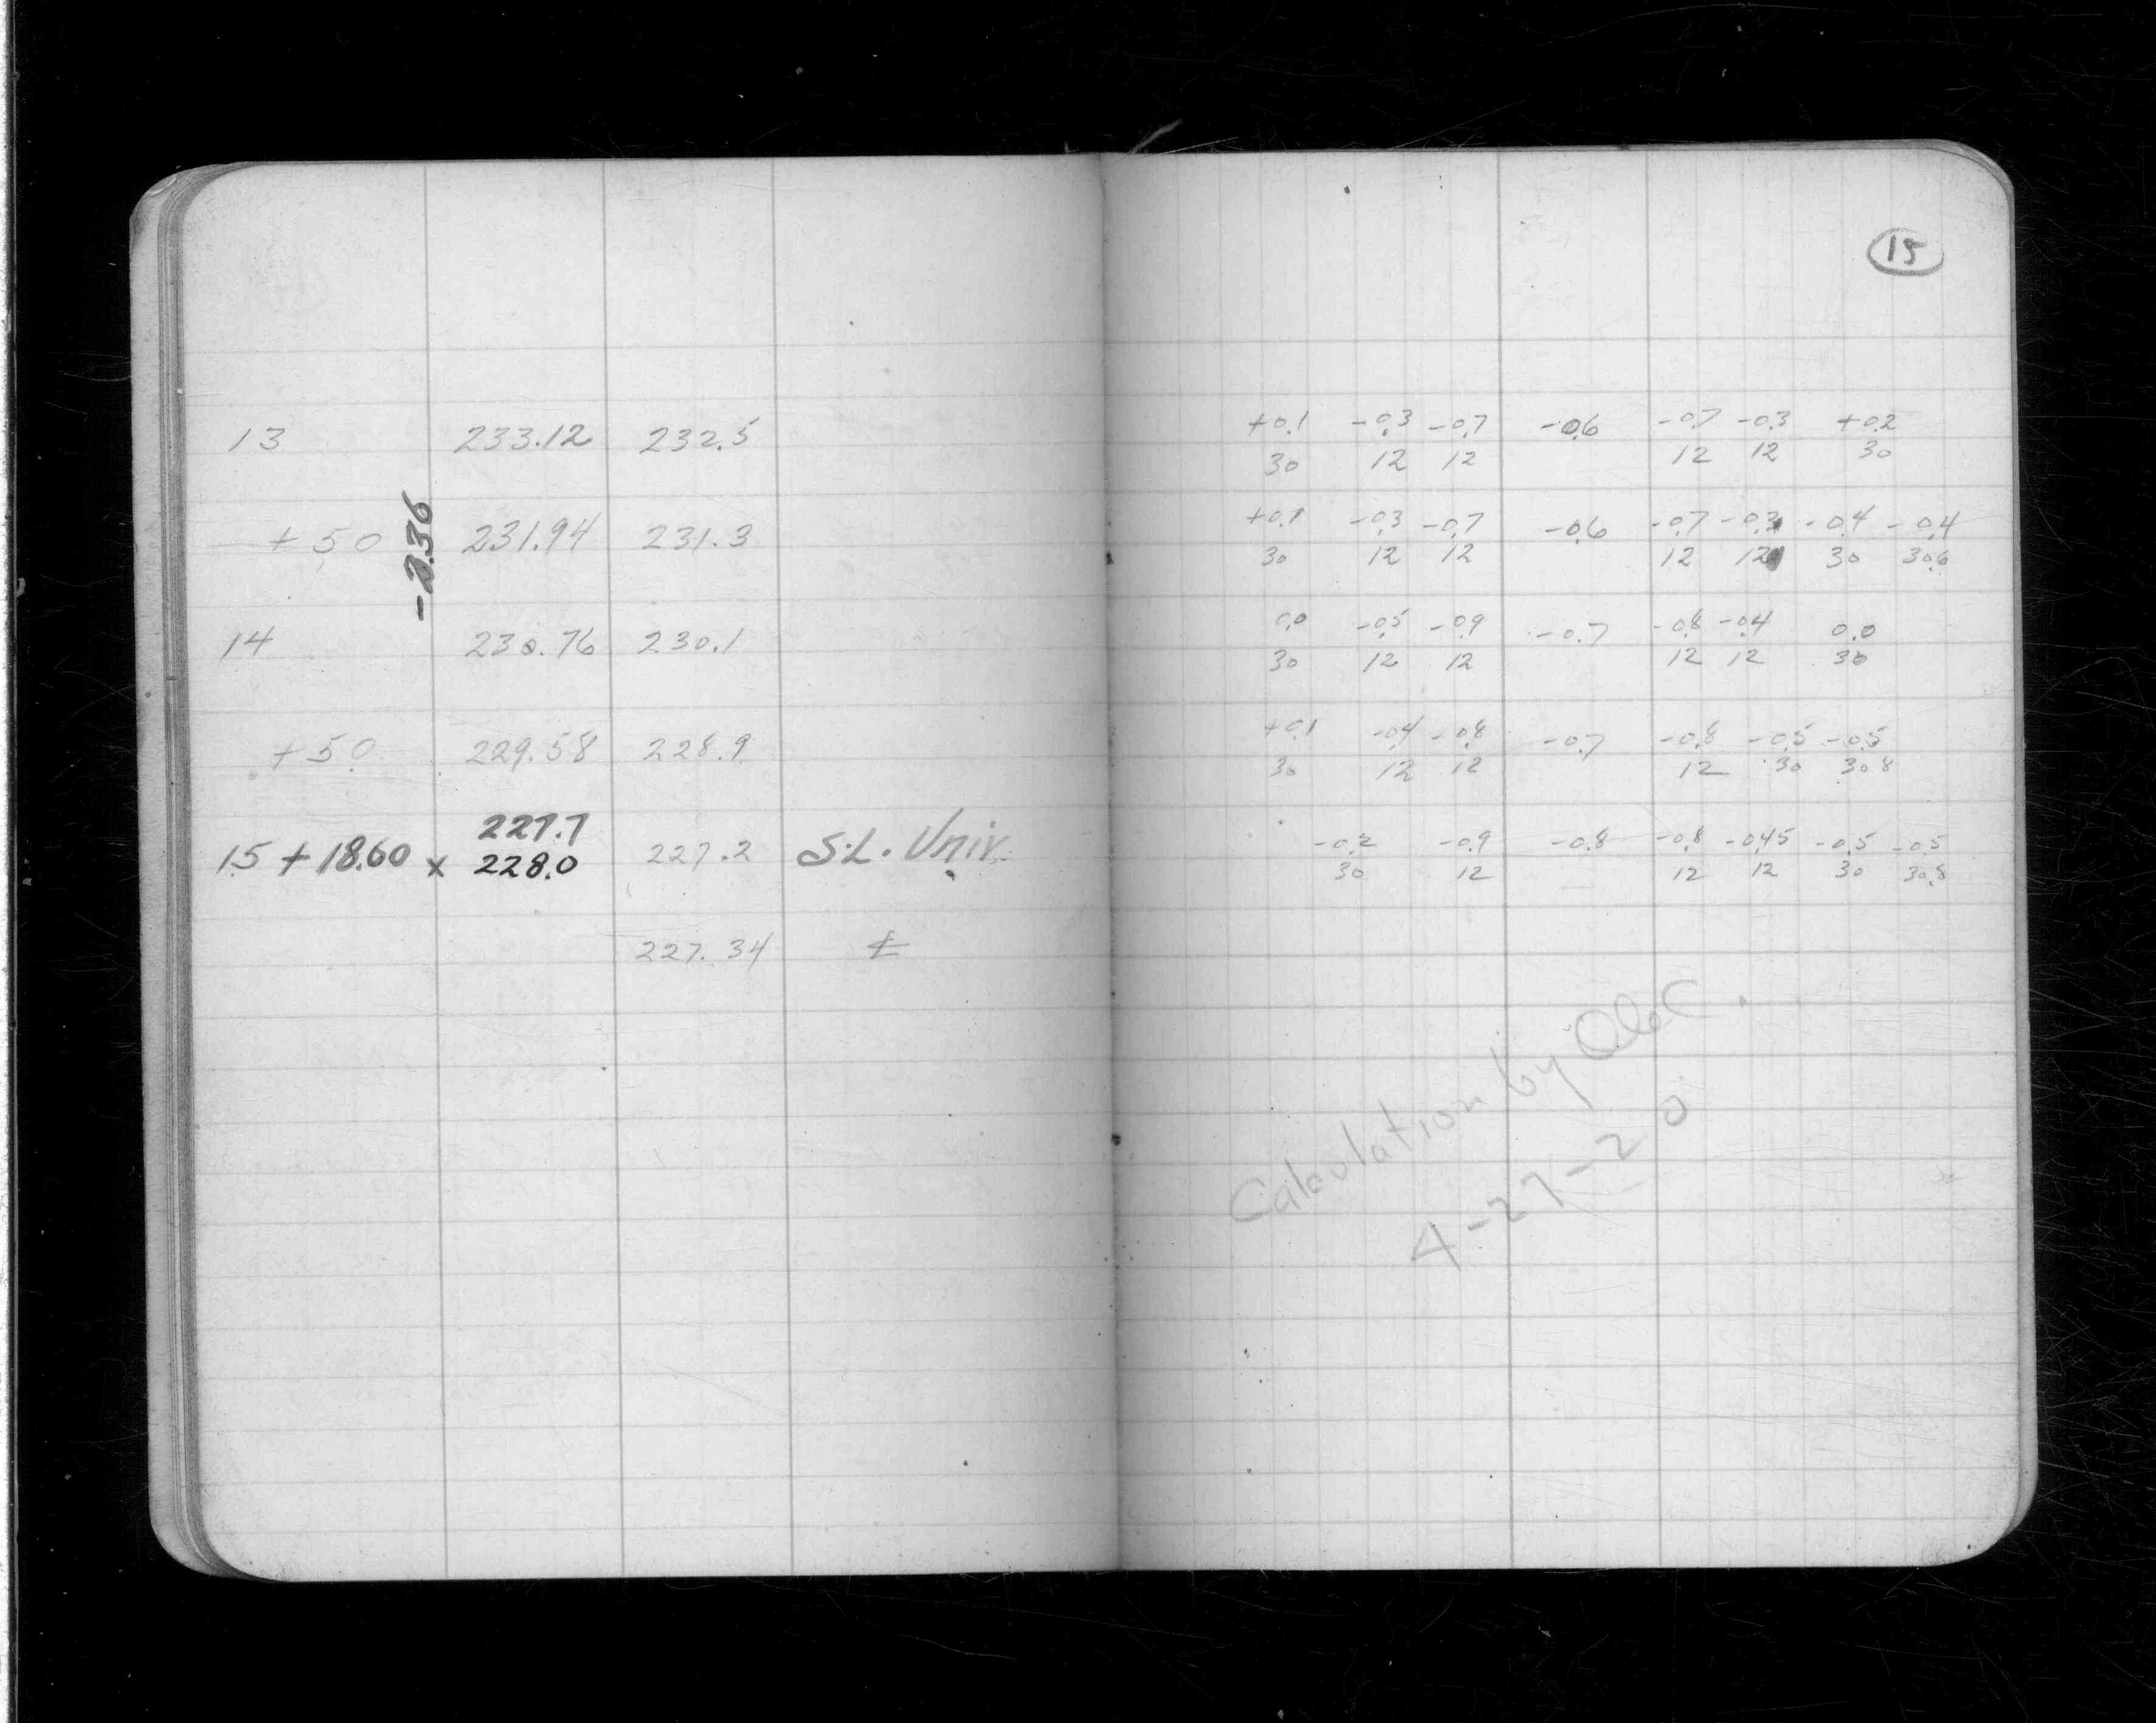 15
13 233.12 232.5 +0.1 -0.3 -0.7 -0.6 -0.7 -0.3 +0.2
30 12 12 12 12 30
-2.36
+50 231.94 231.3 +0.1 -0.3 -0.7 -0.6 -0.7 -0.3 -0.4 -0.4
30 12 12 12 12 30 30.6
14 230.76 230.1 0.0 -0.5 -0.9 -0.7 -0.8 -0.4 0.0
30 12 12 12 12 30
+50 229.58 228.9 +0.1 -0.4 -0.8 -0.7 -0.8 -0.5 -0.5
30 12 12 12 30 30.8
227.7
15 + 18.60 x 228.0 227.2 S.L. Univ. -0.2 -0.9 -0.8 -0.8 -0.45 -0.5 -0.5
30 12 12 12 30 30.8
227.34 ℄
Calculation by
4-27-20